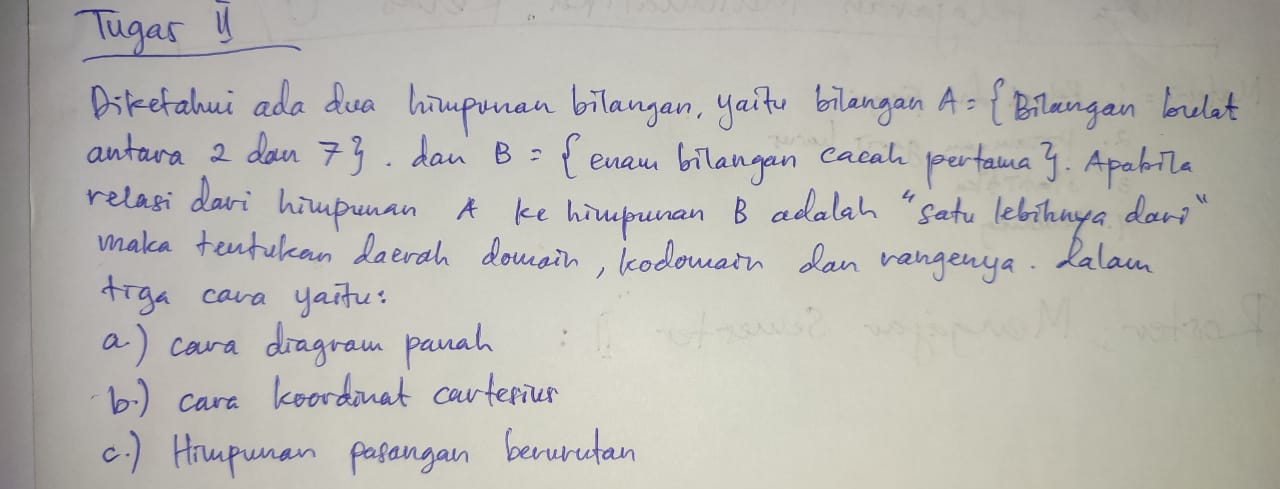 Tugas II
Diketahui ada dua himpunan bilangan, yaitu bilangan A = { Bilangan bulat
antara 2 dan 7 }. dan B = { enam bilangan cacah pertama }. Apabila
relasi dari himpunan A ke himpunan B adalah "satu lebihnya dari"
maka tentukan daerah domain, kodomain dan rangenya. dalam
tiga cara yaitu:
a.) cara diagram panah
b.) cara koordinat cartesius
c.) Himpunan pasangan berurutan